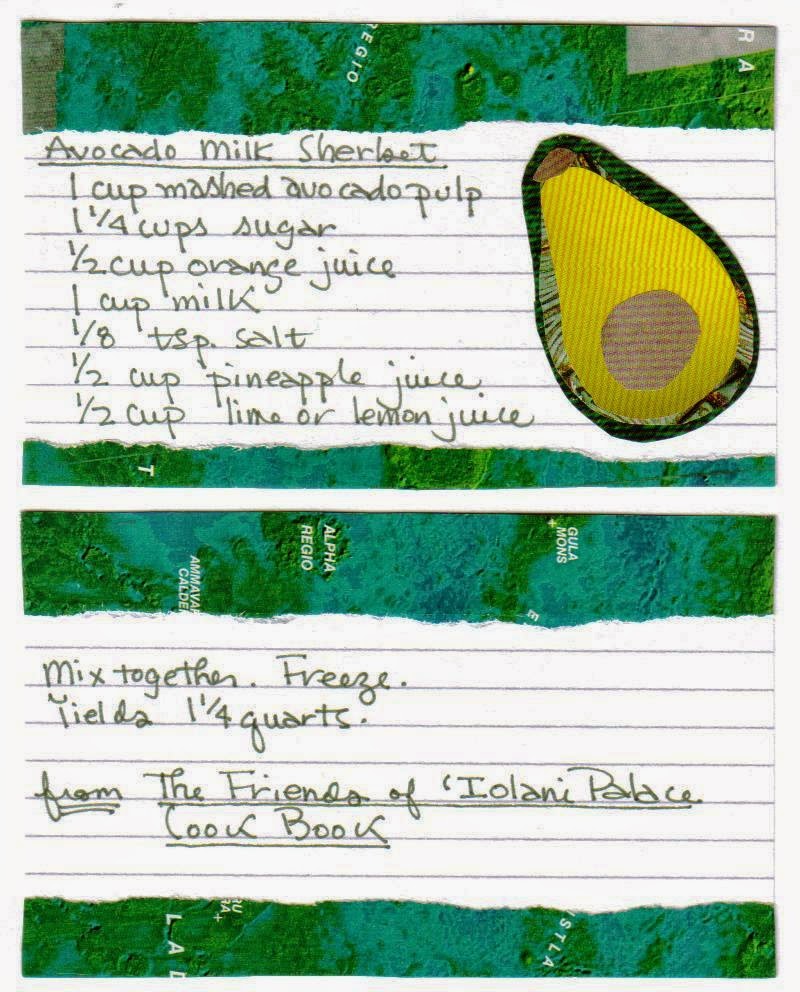 REGIO
R A
Avocado Milk Sherbet
1 cup mashed avocado pulp
1 1/4 cups sugar
1/2 cup orange juice
1 cup milk
1/8 tsp. salt
1/2 cup pineapple juice
1/2 cup lime or lemon juice
T
AMMAVA
CALDE
ALPHA
REGIO
GULA
MONS
E
Mix together. Freeze.
Yields 1 1/4 quarts.
from The Friends of ʻIolani Palace
Cook Book
L A
RU
RA
ISTLA